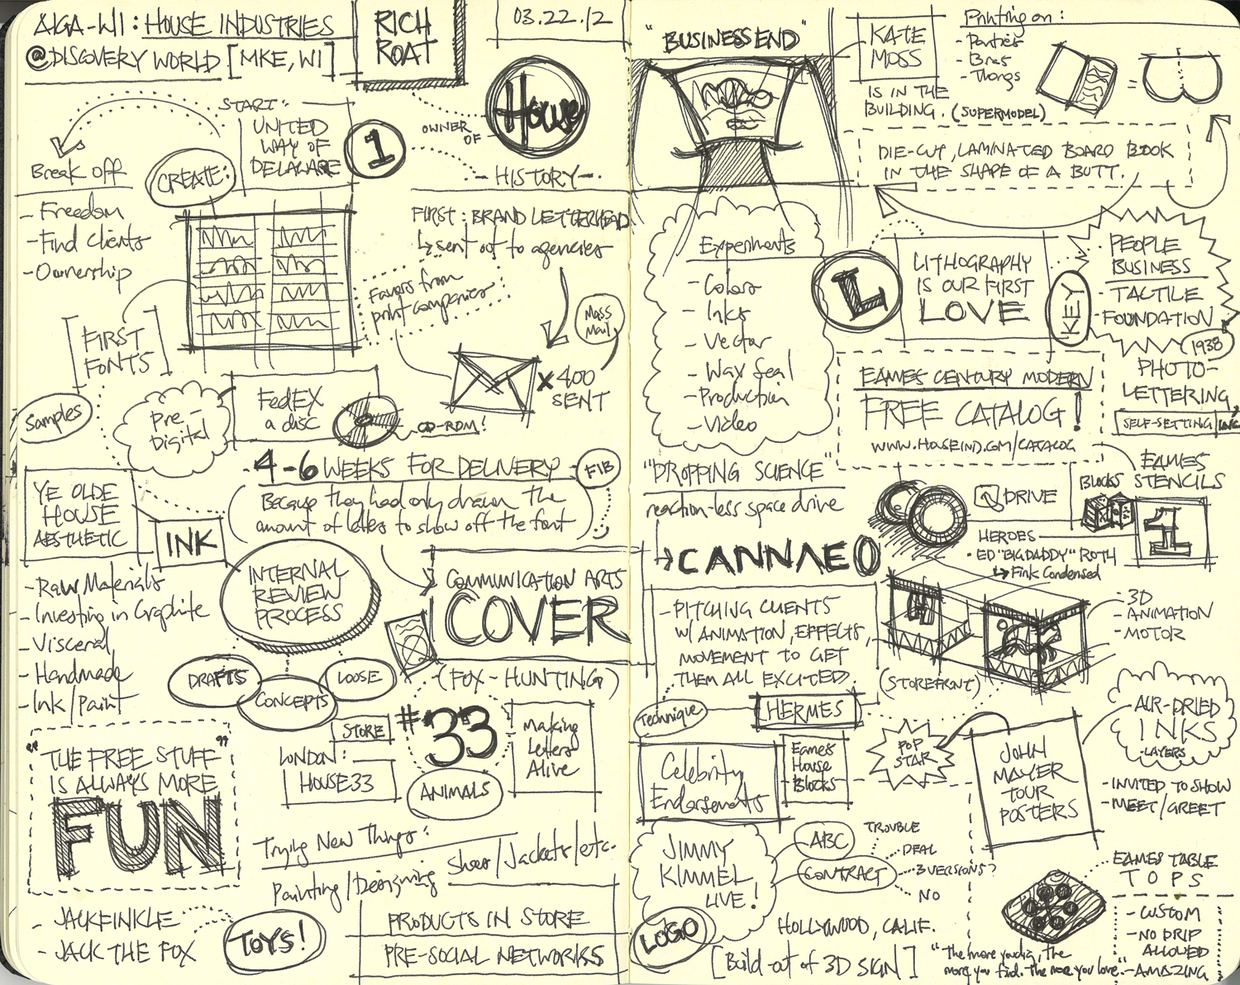 AIGA-WI: HOUSE INDUSTRIES
@DISCOVERY WORLD [MKE, WI]
RICH
ROAT
03.22.12
START:
UNITED
WAY OF
DELAWARE
1
OWNER
OF
House
- HISTORY -
Break off
CREATE:
- Freedom
- Find Clients
- Ownership
FIRST: BRAND LETTERHEAD
↳ sent out to agencies
Favors from
print companies
Mass
Mail
[FIRST
FONTS]
x 400
SENT
Samples
Pre-
Digital
FedEX
a disc
CD-ROM!
4-6 WEEKS FOR DELIVERY
FIB
(Because they had only drawn the
amount of letters to show off the font)
YE OLDE
HOUSE
AESTHETIC
INK
- Raw Materials
- Investing in Graphite
- Visceral
- Handmade
- Ink/Paint
INTERNAL
REVIEW
PROCESS
DRAFTS
CONCEPTS
LOOSE
COMMUNICATION ARTS
COVER
(FOX-HUNTING)
"THE FREE STUFF"
IS ALWAYS MORE
FUN
STORE
LONDON:
HOUSE33
#33
ANIMALS
Making
Letters
Alive
Trying New Things:
Painting/Designing
Shoes/Jackets/etc.
- JACKFINKLE
- JACK THE FOX
TOYS!
PRODUCTS IN STORE
PRE-SOCIAL NETWORKS
"BUSINESS END"
KATE
MOSS
IS IN THE
BUILDING. (SUPERMODEL)
Printing on:
- Panties
- Bras
- Thongs
=
DIE-CUT, LAMINATED BOARD BOOK
IN THE SHAPE OF A BUTT.
Experiments
- Colors
- Inks
- Vector
- Wax Seal
- Production
- Video
L
LITHOGRAPHY
IS OUR FIRST
LOVE
KEY
PEOPLE
BUSINESS
- TACTILE
FOUNDATION
1938
PHOTO-
LETTERING
SELF-SETTING
EAMES CENTURY MODERN
FREE CATALOG!
WWW.HOUSEIND.COM/CATALOG
"DROPPING SCIENCE"
reaction-less space drive
→ CANNAEO
Q DRIVE
EAMES
STENCILS
BLOCKS
1
HEROES
• ED "BIG DADDY" ROTH
↳ Fink Condensed
- PITCHING CLIENTS
W/ ANIMATION, EFFECTS,
MOVEMENT TO GET
THEM ALL EXCITED.
(STOREFRONT)
- 3D
- ANIMATION
- MOTOR
Technique
HERMES
AIR-DRIED
INKS
- LAYERS -
Celebrity
Endorsements
Eames
House
Blocks
POP
STAR
JOHN
MAYER
TOUR
POSTERS
- INVITED TO SHOW
- MEET/GREET
JIMMY
KIMMEL
LIVE!
ABC
CONTRACT
TROUBLE
DEAL
3 VERSIONS?
NO
LOGO
HOLLYWOOD, CALIF.
[Build-out of 3D SIGN]
EAMES TABLE
TOPS
- CUSTOM
- NO DRIP
ALLOWED
- AMAZING
"The more you dig, the
more you find. The more you love."